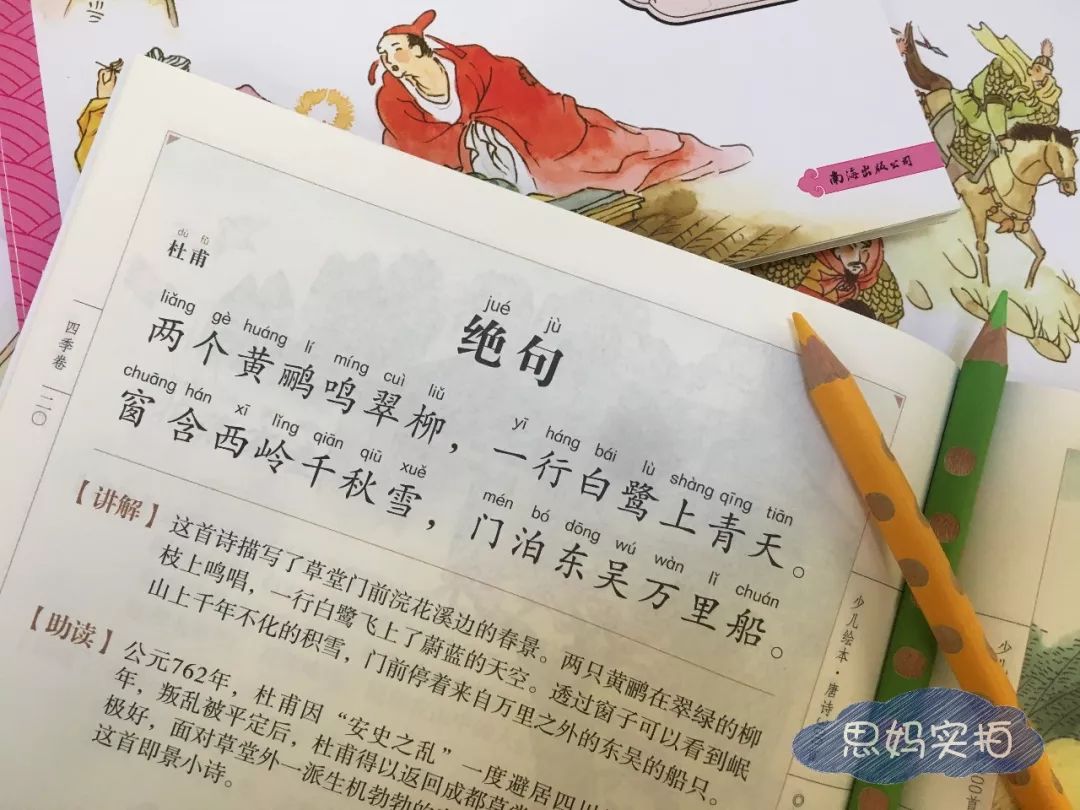 南海出版公司
dù fǔ
杜甫
jué jù
绝句
liǎng gè huáng lí míng cuì liǔ
两个黄鹂鸣翠柳，
yī háng bái lù shàng qīng tiān
一行白鹭上青天。
chuāng hán xī lǐng qiān qiū xuě
窗含西岭千秋雪，
mén bó dōng wú wàn lǐ chuán
门泊东吴万里船。
【讲解】这首诗描写了草堂门前浣花溪边的春景。两只黄鹂在翠绿的柳
枝上鸣唱，一行白鹭飞上了蔚蓝的天空。透过窗子可以看到岷
山上千年不化的积雪，门前停着来自万里之外的东吴的船只。
【助读】公元762年，杜甫因“安史之乱”一度避居四川
年，叛乱被平定后，杜甫得以返回成都草堂
极好，面对草堂外一派生机勃勃的
这首即景小诗。
四季卷
二〇
少儿绘本·唐诗
少儿
00首
思妈实拍